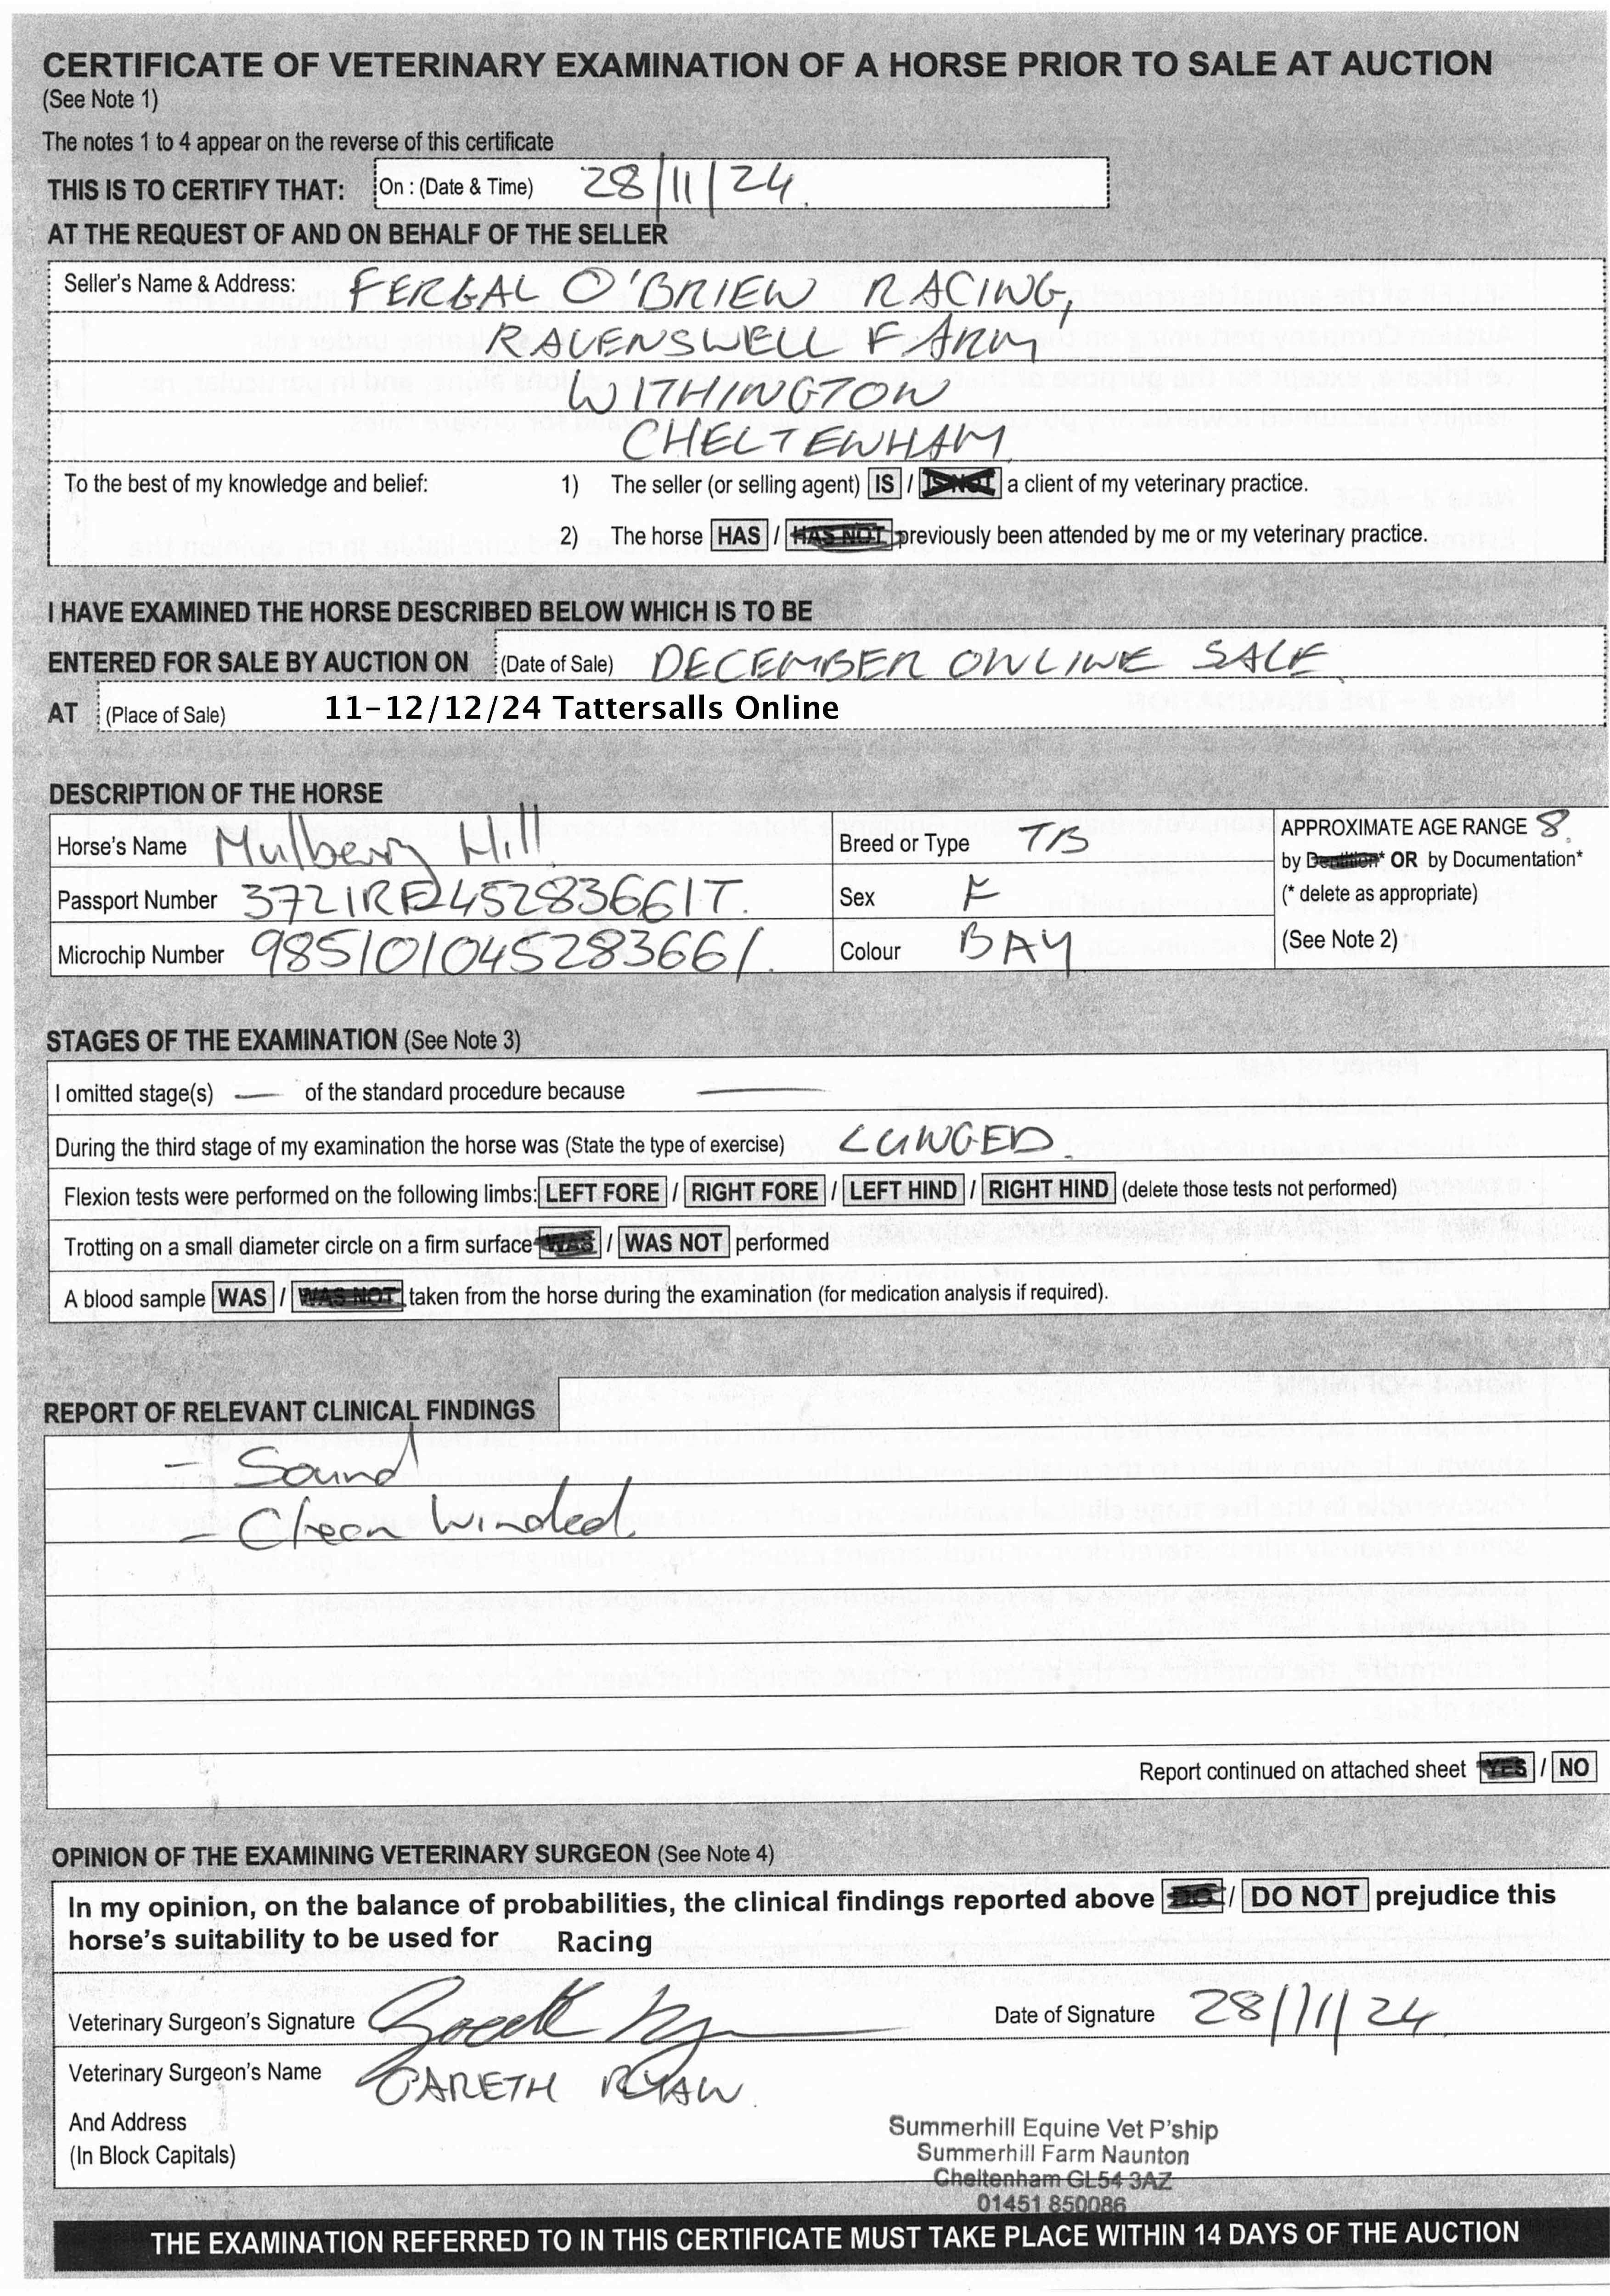 CERTIFICATE OF VETERINARY EXAMINATION OF A HORSE PRIOR TO SALE AT AUCTION
(See Note 1)
The notes 1 to 4 appear on the reverse of this certificate
THIS IS TO CERTIFY THAT: On : (Date & Time) 28/11/24.
AT THE REQUEST OF AND ON BEHALF OF THE SELLER
Seller's Name & Address: FERGAL O'BRIEN RACING,
RAVENSWELL FARM
WITHINGTON
CHELTENHAM.
To the best of my knowledge and belief: 1) The seller (or selling agent) IS / IS NOT a client of my veterinary practice.
2) The horse HAS / HAS NOT previously been attended by me or my veterinary practice.
I HAVE EXAMINED THE HORSE DESCRIBED BELOW WHICH IS TO BE
ENTERED FOR SALE BY AUCTION ON (Date of Sale) DECEMBER ONLINE SALE.
AT (Place of Sale) 11-12/12/24 Tattersalls Online
DESCRIPTION OF THE HORSE
Horse's Name Mulberry Hill Breed or Type TB APPROXIMATE AGE RANGE 8.
by Dentition* OR by Documentation*
Passport Number 372IRE45283661T. Sex F (* delete as appropriate)
Microchip Number 985101045283661. Colour BAY (See Note 2)
STAGES OF THE EXAMINATION (See Note 3)
I omitted stage(s) — of the standard procedure because —
During the third stage of my examination the horse was (State the type of exercise) LUNGED.
Flexion tests were performed on the following limbs: LEFT FORE / RIGHT FORE / LEFT HIND / RIGHT HIND (delete those tests not performed)
Trotting on a small diameter circle on a firm surface WAS / WAS NOT performed
A blood sample WAS / WAS NOT taken from the horse during the examination (for medication analysis if required).
REPORT OF RELEVANT CLINICAL FINDINGS
- Sound
- Clean winded.
Report continued on attached sheet YES / NO
OPINION OF THE EXAMINING VETERINARY SURGEON (See Note 4)
In my opinion, on the balance of probabilities, the clinical findings reported above DO / DO NOT prejudice this
horse's suitability to be used for Racing
Veterinary Surgeon's Signature Date of Signature 28/11/24
Veterinary Surgeon's Name GARETH RYAN
And Address
(In Block Capitals)
Summerhill Equine Vet P'ship
Summerhill Farm Naunton
Cheltenham GL54 3AZ
01451 850086
THE EXAMINATION REFERRED TO IN THIS CERTIFICATE MUST TAKE PLACE WITHIN 14 DAYS OF THE AUCTION